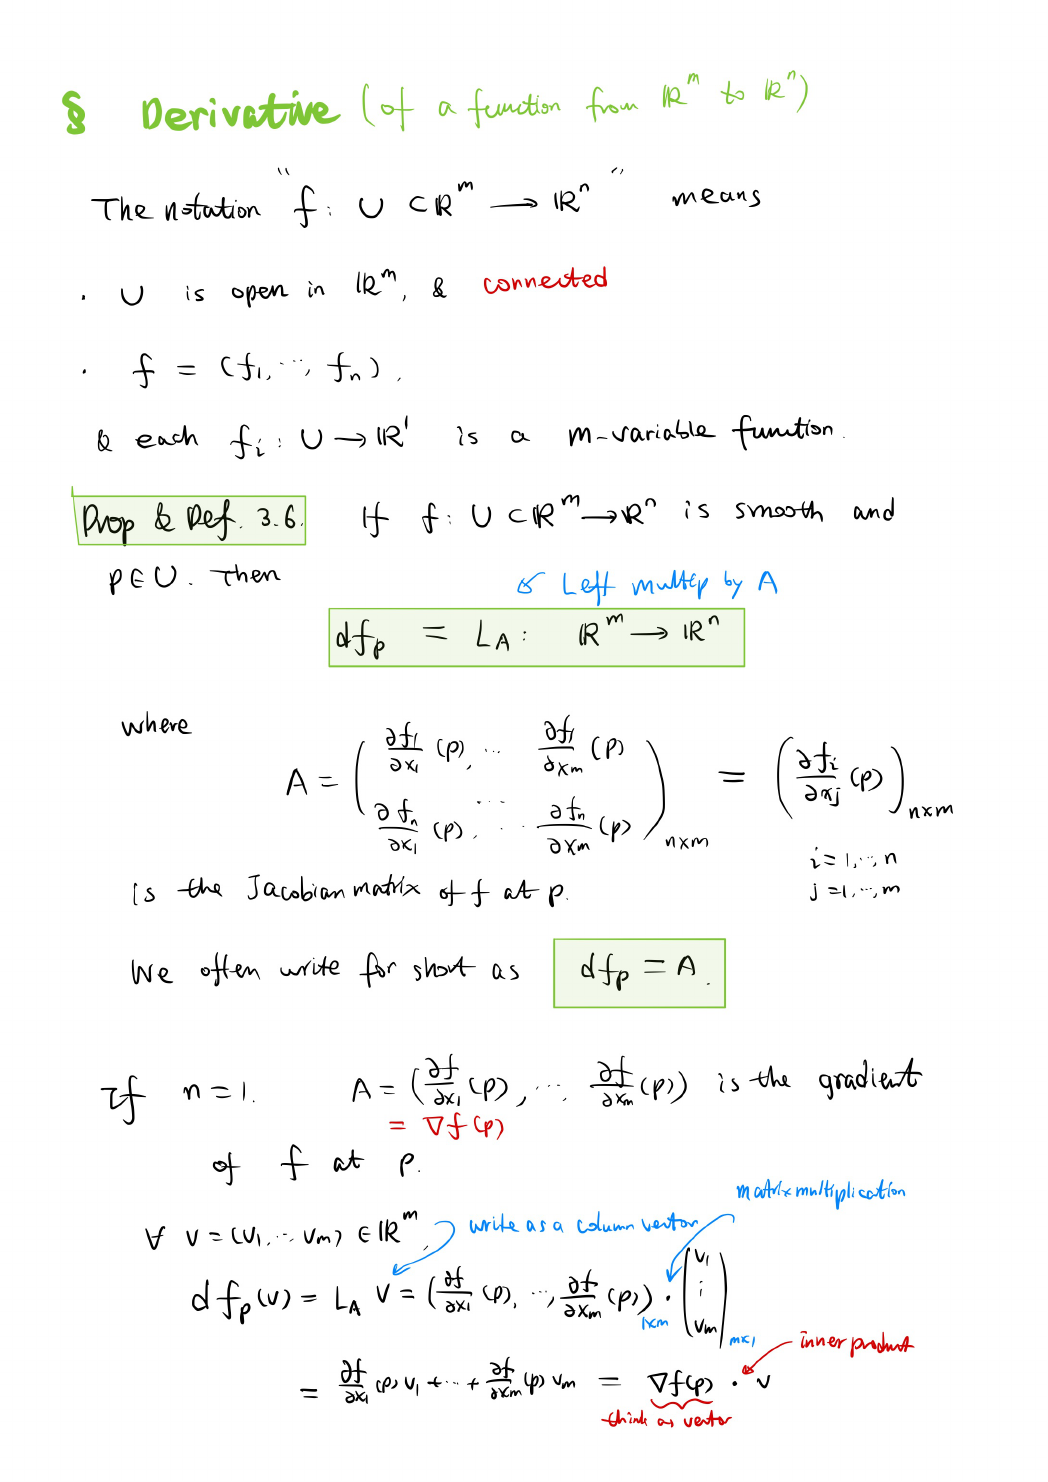 § Derivative (of a function from ℝ^m to ℝ^n)
The notation "f: U ⊂ ℝ^m → ℝ^n" means
· U is open in ℝ^m, & connected
· f = (f_1, ⋯, f_n).
& each f_i : U → ℝ^1 is a m-variable function.
Prop & Def. 3.6. If f: U ⊂ ℝ^m → ℝ^n is smooth and
p ∈ U. Then
↙ Left multip by A
df_p = L_A : ℝ^m → ℝ^n
where
A = ( ∂f_1/∂x_1 (p), ⋯ ∂f_1/∂x_m (p) ; ⋯ ; ∂f_n/∂x_1 (p), ⋯ ∂f_n/∂x_m (p) )_{n×m} = ( ∂f_i/∂x_j (p) )_{n×m}
i = 1, ⋯, n
j = 1, ⋯, m
is the Jacobian matrix of f at p.
We often write for short as df_p = A.
If n = 1. A = (∂f/∂x_1 (p), ⋯, ∂f/∂x_m (p)) is the gradient
= ∇f(p)
of f at p.
matrix multiplication
∀ v = (v_1, ⋯ v_m) ∈ ℝ^m, write as a column vector
df_p(v) = L_A v = (∂f/∂x_1 (p), ⋯, ∂f/∂x_m (p))_{1×m} · (v_1 ⋮ v_m)_{m×1}
inner product
= ∂f/∂x_1 (p) v_1 + ⋯ + ∂f/∂x_m (p) v_m = ∇f(p) · v
think as vector